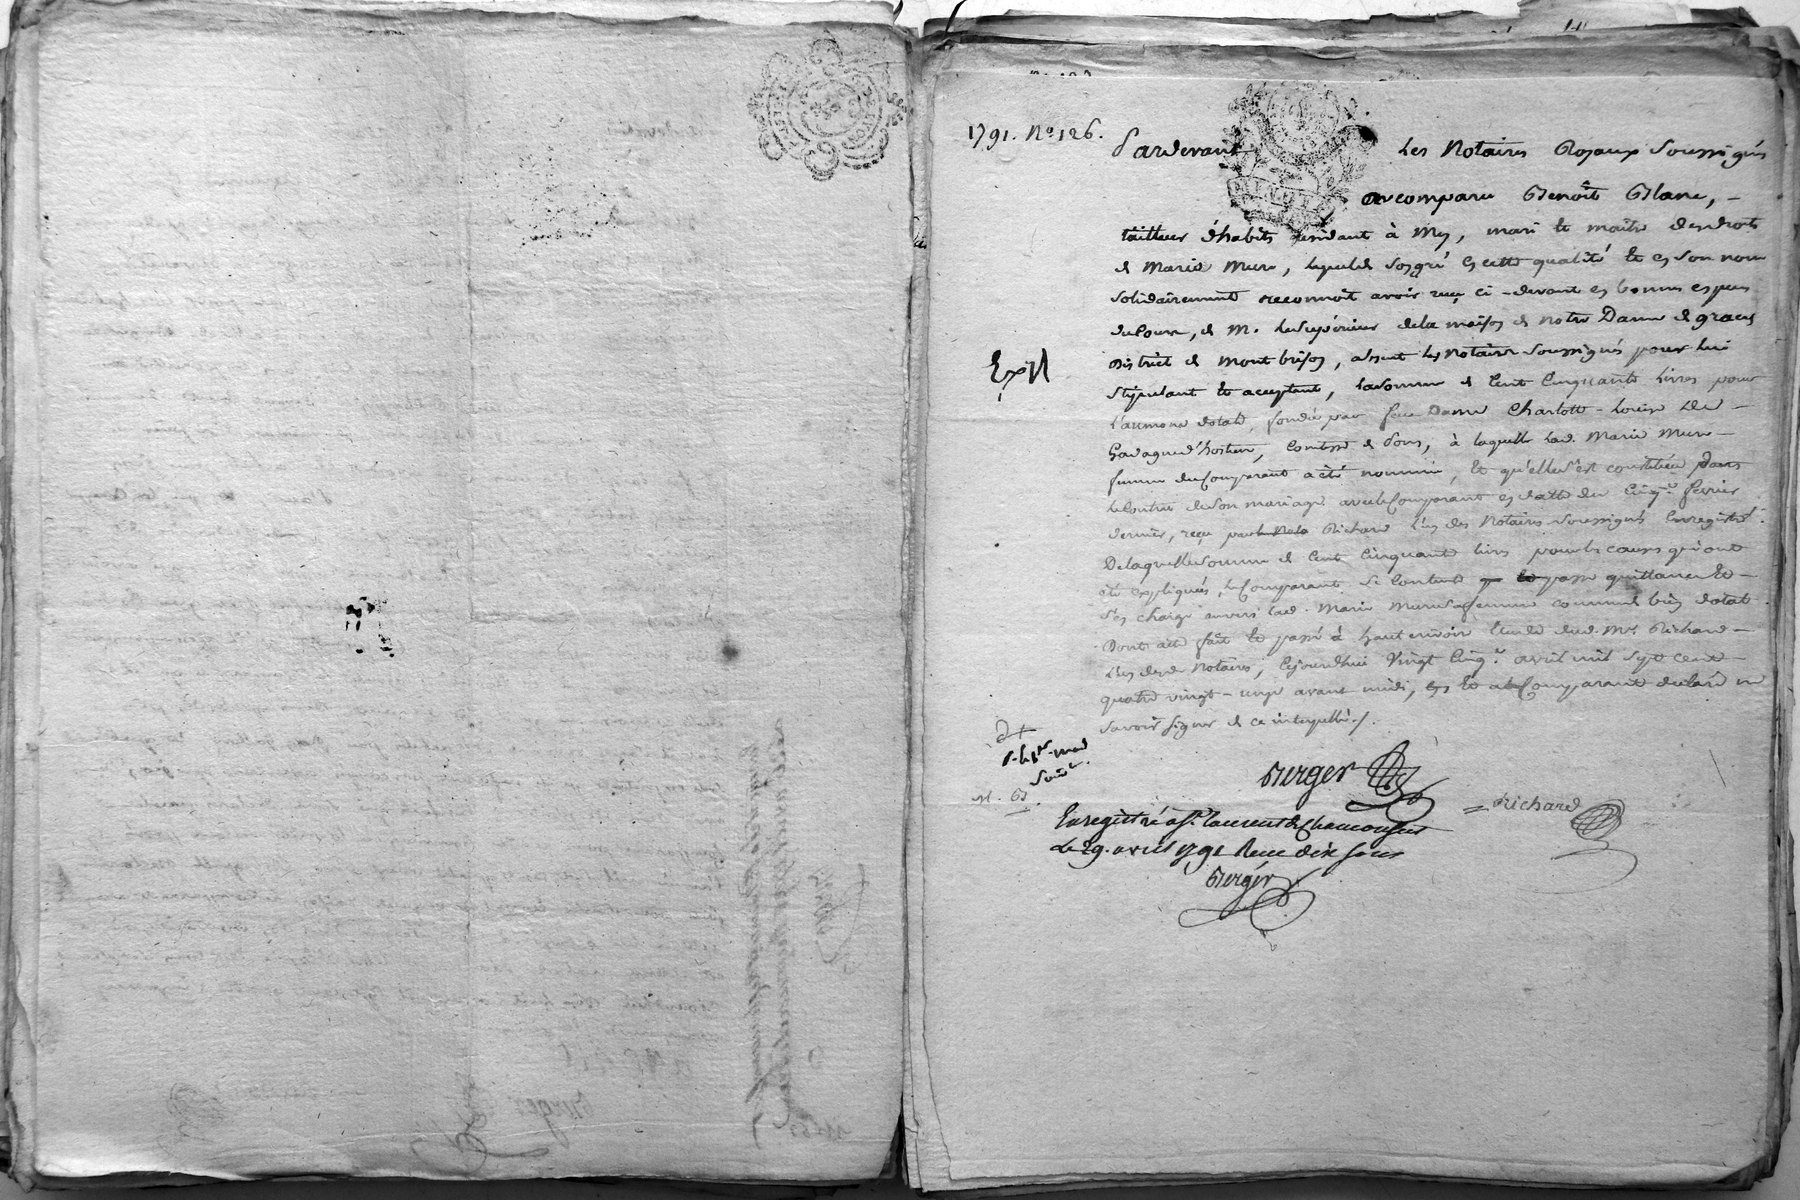 1791. No. 126.
Pardevant Les Notaires Royaux Soussignés
a comparu Benoît Blanc, -
tailleur d'habits residant à Mey, mari et maître des droits
de Marie Mure, lequel de son gré en cette qualité et en son nom
solidairement reconnoit avoir reçu ci-devant en bonnes especes
de cours, de M. le Supérieur de la maison de notre Dame de graces
District de Montbrison, absent les Notaires Soussignés pour lui
stipulant et acceptant, la somme de Cent Cinquante Livres pour
Expé
L'aumone dotale, fondée par feue Dame Charlotte-Louise De -
Gadagne d'hostun, Comtesse de Pons, à laquelle lad. Marie Mure -
femme du Comparant a été nommée, et qu'elle s'est constituée dans
le Contrat de son mariage avec le Comparant en datte du Cinq.e fevrier
dernier, reçu par Richard L'un des Notaires Soussignés Enregistré.
De laquelle somme de Cent Cinquante livres pour les causes qui ont
été expliquées, le Comparant se Contente passe quittance et -
s'en charge envers lad. Marie Mure sa femme comme de bien dotal.
Dont acte fait et passé à hautrivoir Etude dud. Me Richard -
L'un desd. Notaires, Cejourd'hui Vingt Cinq.e avril mil sept cent -
quatre vingt-onze avant midi, et le Comparant declaré ne
savoir signer de ce interpellé./.
Burger
Richard
Enregistré a St. laurent de Chamousset
Le 29. avril 1791 Reçu dix sous
Burger